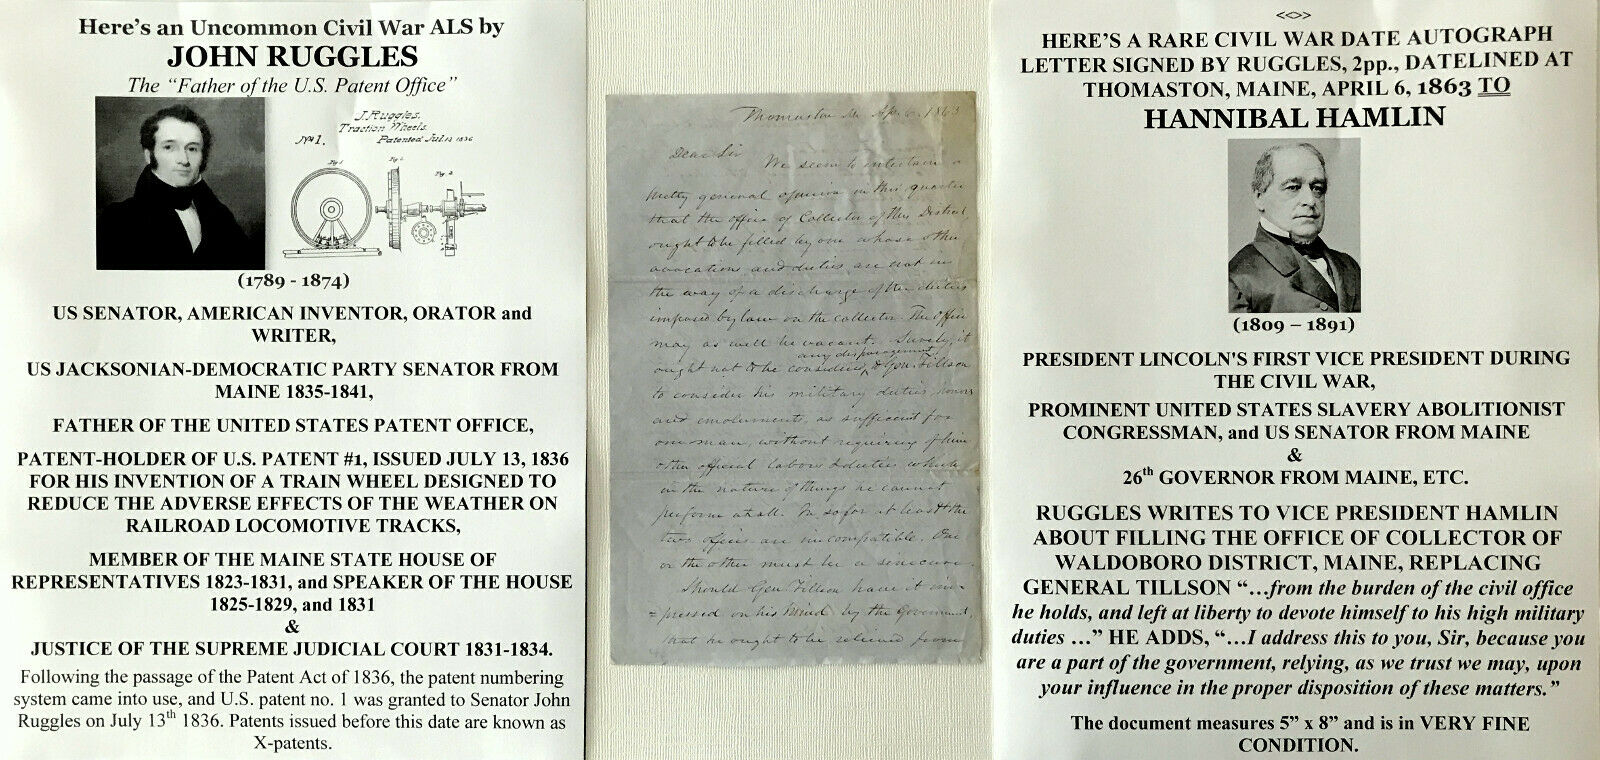 Here's an Uncommon Civil War ALS by
JOHN RUGGLES
The "Father of the U.S. Patent Office"
J. Ruggles.
Traction Wheels.
Nº 1.
Patented Jul. 13 1836
Fig. 1
Fig. 2
(1789 - 1874)
US SENATOR, AMERICAN INVENTOR, ORATOR and
WRITER,
US JACKSONIAN-DEMOCRATIC PARTY SENATOR FROM
MAINE 1835-1841,
FATHER OF THE UNITED STATES PATENT OFFICE,
PATENT-HOLDER OF U.S. PATENT #1, ISSUED JULY 13, 1836
FOR HIS INVENTION OF A TRAIN WHEEL DESIGNED TO
REDUCE THE ADVERSE EFFECTS OF THE WEATHER ON
RAILROAD LOCOMOTIVE TRACKS,
MEMBER OF THE MAINE STATE HOUSE OF
REPRESENTATIVES 1823-1831, and SPEAKER OF THE HOUSE
1825-1829, and 1831
&
JUSTICE OF THE SUPREME JUDICIAL COURT 1831-1834.
Following the passage of the Patent Act of 1836, the patent numbering
system came into use, and U.S. patent no. 1 was granted to Senator John
Ruggles on July 13th 1836. Patents issued before this date are known as
X-patents.
Thomaston Me Ap. 6. 1863
Dear Sir
We seem to entertain a
pretty general opinion in this quarter
that the office of Collector of this District,
ought to be filled by one whose other
avocations and duties are not in
the way of a discharge of the duties
imposed by law on the collector. The Office
may as well be vacant. Surely, it
any disparagement
ought not to be considered to Gen. Tillson
to consider his military duties, honors
and emoluments, as sufficient for
one man, without requiring of him
other official labors & duties which
in the nature of things he cannot
perform at all. In so far at least the
two offices are incompatible. One
or the other must be a sinecure.
Should Gen Tillson have it im-
=pressed on his mind by the Government,
that he ought to be relieved from
<<>>
HERE'S A RARE CIVIL WAR DATE AUTOGRAPH
LETTER SIGNED BY RUGGLES, 2pp., DATELINED AT
THOMASTON, MAINE, APRIL 6, 1863 TO
HANNIBAL HAMLIN
(1809 – 1891)
PRESIDENT LINCOLN'S FIRST VICE PRESIDENT DURING
THE CIVIL WAR,
PROMINENT UNITED STATES SLAVERY ABOLITIONIST
CONGRESSMAN, and US SENATOR FROM MAINE
&
26th GOVERNOR FROM MAINE, ETC.
RUGGLES WRITES TO VICE PRESIDENT HAMLIN
ABOUT FILLING THE OFFICE OF COLLECTOR OF
WALDOBORO DISTRICT, MAINE, REPLACING
GENERAL TILLSON "...from the burden of the civil office
he holds, and left at liberty to devote himself to his high military
duties ..." HE ADDS, "...I address this to you, Sir, because you
are a part of the government, relying, as we trust we may, upon
your influence in the proper disposition of these matters."
The document measures 5" x 8" and is in VERY FINE
CONDITION.